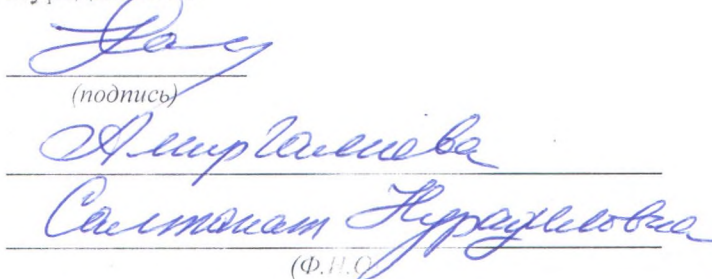 (подпись)
Амиргалиева
Салтанат Нурадиловна
(Ф.И.О